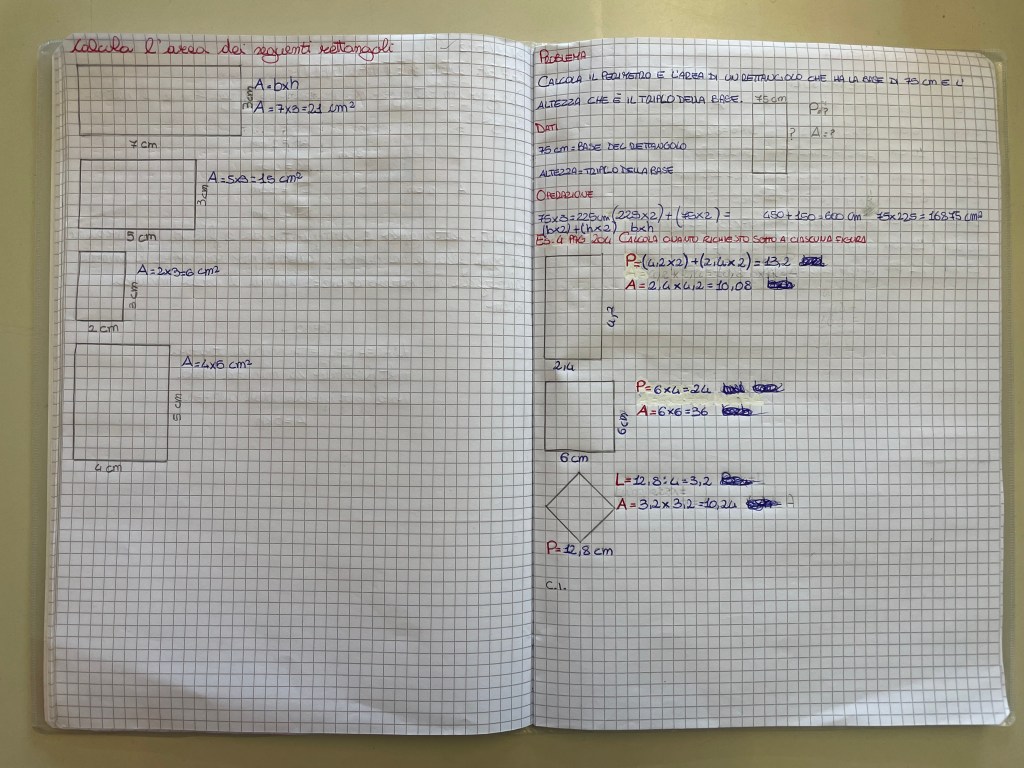 Calcola l'area dei seguenti rettangoli
A=bxh
A=7x3=21 cm²
3cm
7cm
A=5x3=15 cm²
3cm
5cm
A=2x3=6 cm²
3cm
2cm
A=4x5 cm²
5 cm
4cm
PROBLEMA
CALCOLA IL PERIMETRO E L'AREA DI UN RETTANGOLO CHE HA LA BASE DI 75 cm E L'
ALTEZZA CHE È IL TRIPLO DELLA BASE. 75cm
P=?
? A=?
DATI
75 cm = BASE DEL RETTANGOLO
ALTEZZA = TRIPLO DELLA BASE
OPERAZIONE
75x3=225cm (225x2)+(75x2)= 450+150=600 cm 75x225=16875 cm²
(bx2)+(hx2) bxh
ES. 4 PAG 204 CALCOLA QUANTO RICHIESTO SOTTO A CIASCUNA FIGURA
P=(4,2x2)+(2,4x2)=13,2
A=2,4x4,2=10,08
4,2
2,4
P=6x4=24
A=6x6=36
6cm
6cm
L=12,8:4=3,2
A=3,2x3,2=10,24 A
P=12,8 cm
C.I.